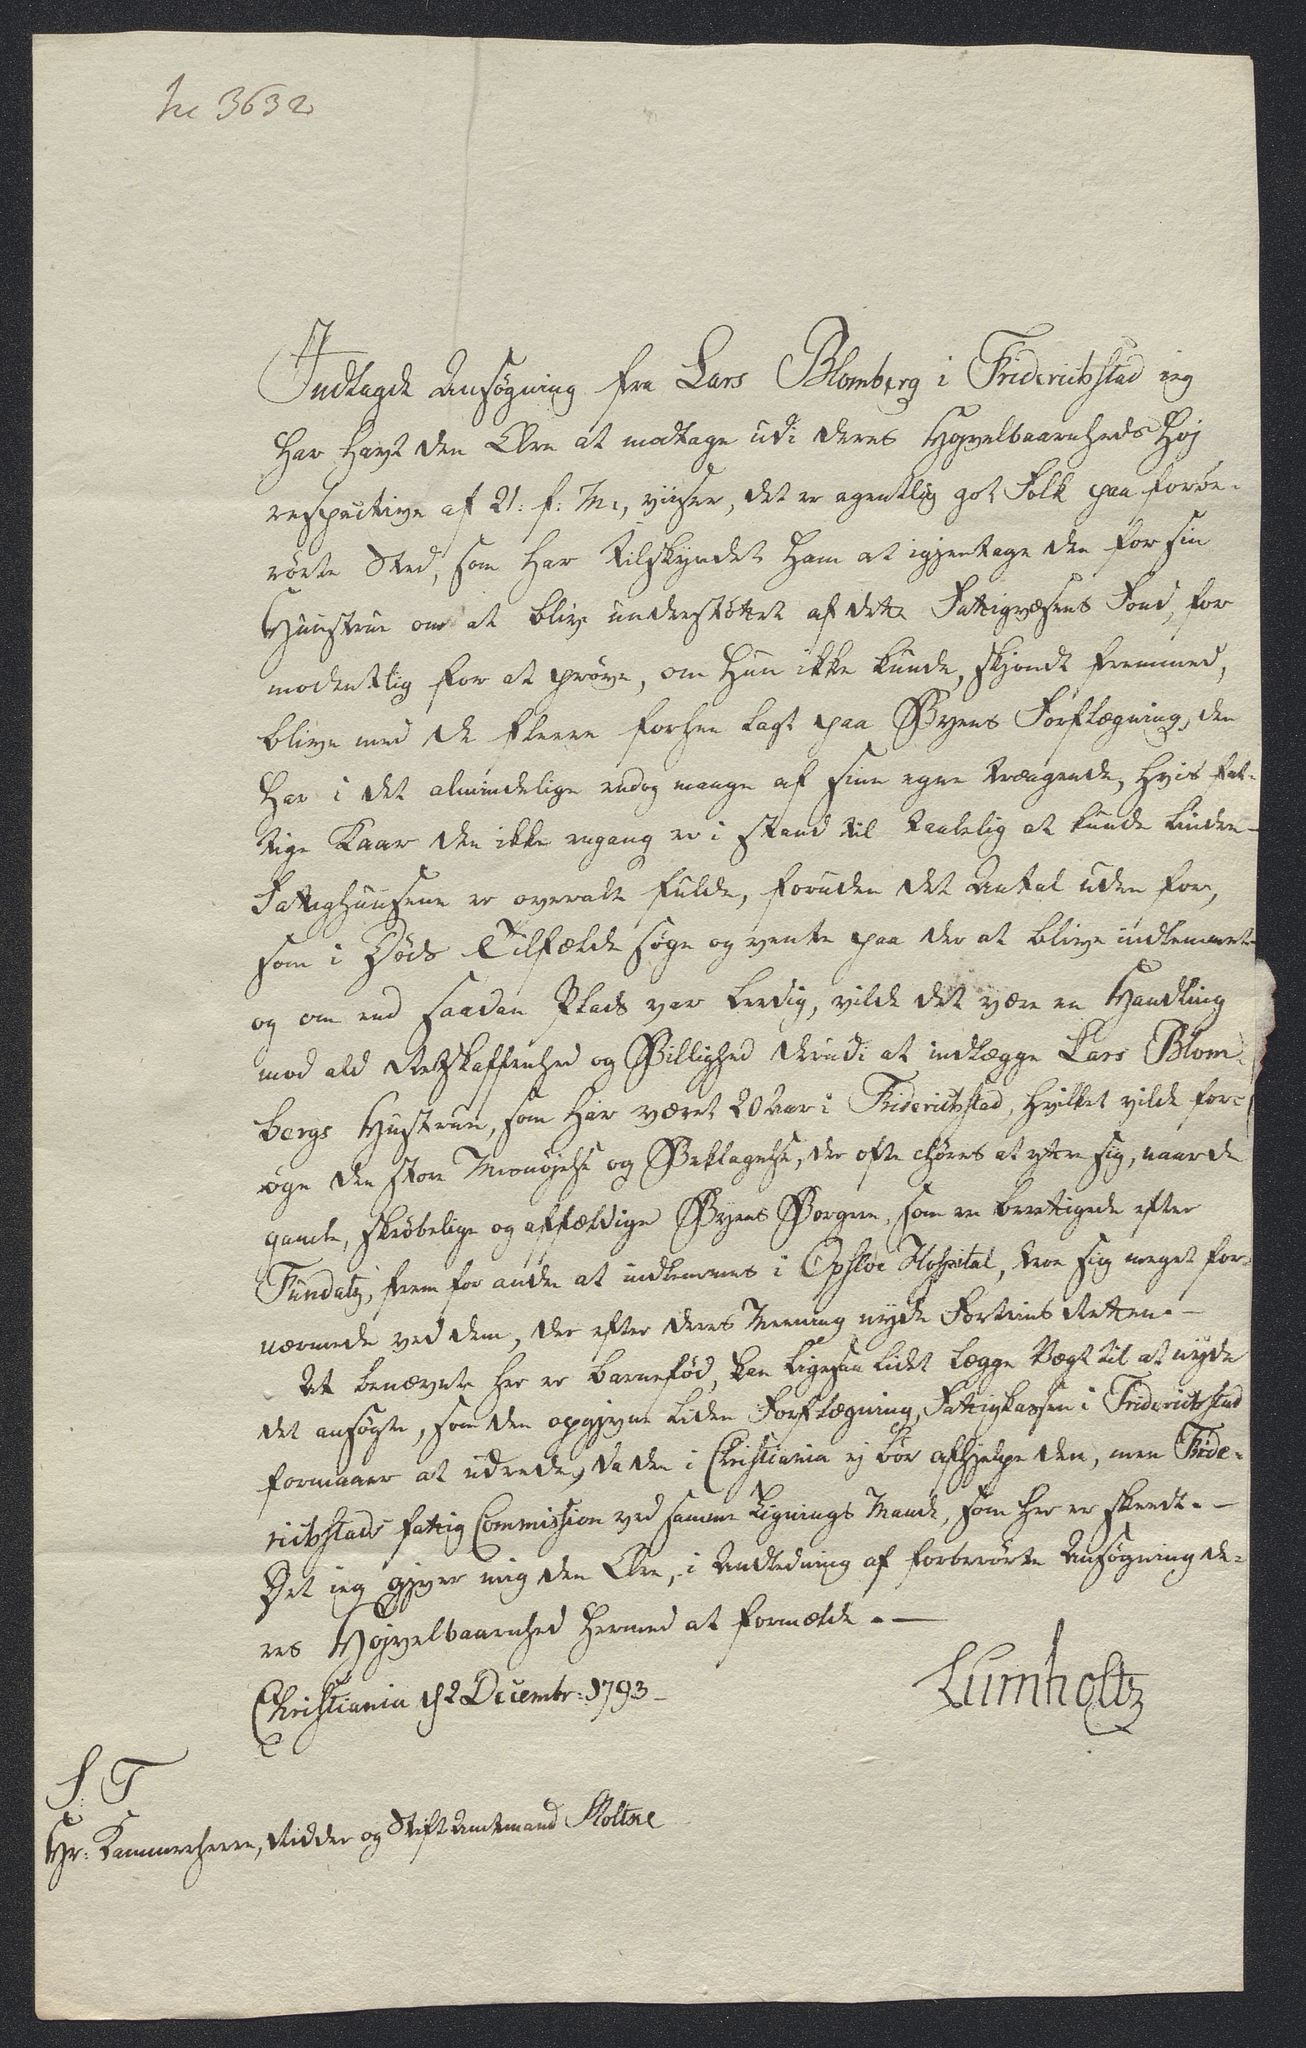 No 3632
Indlagde Ansøgning fra Lars Blomberg i Friderichstad ieg
har havt den Ære at modtage udi deres Høyvelbaarenheds Høj
respective af 21: f: M:, viiser, det er egentlig got Folk paa forbe-
rørte Sted, som har tilskyndet ham at igjentage den for sin
Huustrue om at blive understøttet af dette Fattigvæsens Fond, for
modentlig for at prøve, om hun ikke kunde, skjøndt fremmed,
blive med de fleere forhen lagt paa Byens Forflægning, den
har i det almindelige endog mange af sine egne trængende, hvis fat-
tige Kaar den ikke engang er i stand til taalelig at kunde lindre-
Fattighuusene er overalt fulde, foruden det Antal uden for,
som i Døds Tilfælde søge og vente paa der at blive indlemmet-
og om end saadan Plads var leedig, vilde det være en Handling
mod ald Retskaffenhed og Billighed derudi at indlægge Lars Blom-
bergs Hustrue, som har været 20 Aar i Friderichstad, hvilket vilde for-
øge den store Misnøjelse og Beklagelse, der ofte høres at yttre sig, naar de
gamle, skrøbelige og affældige Byens Borgere, som er berettigede efter
Fundatz, frem for andre at indlemmes i Opsloe Hospital, troe sig meget for-
nærmede ved dem, der efter deres Meening nyde Fortrins Retten.-
Det benævnte her er barnefød, kan ligesaa lidet lægge Vægt til at nyde
det ansøgte, som den opgivne liden Forflægning, Fattigkassen i Friderichstad
formaaer at udrede, da den i Christiania ej bør afhjelpe den, men Fride-
richstads fattig Commission ved samme Lignings Maade, som her er skeedt.-
Det ieg gjver mig den Ære, i Anledning af forberørte Ansøgning de-
res Højvelbaarenhed hermed at formælde.-
Christiania d 2 Decembr: 1793-
Lumholtz
S. T
Hr: Kammerherre, Ridder og Stiftamtmand Moltke